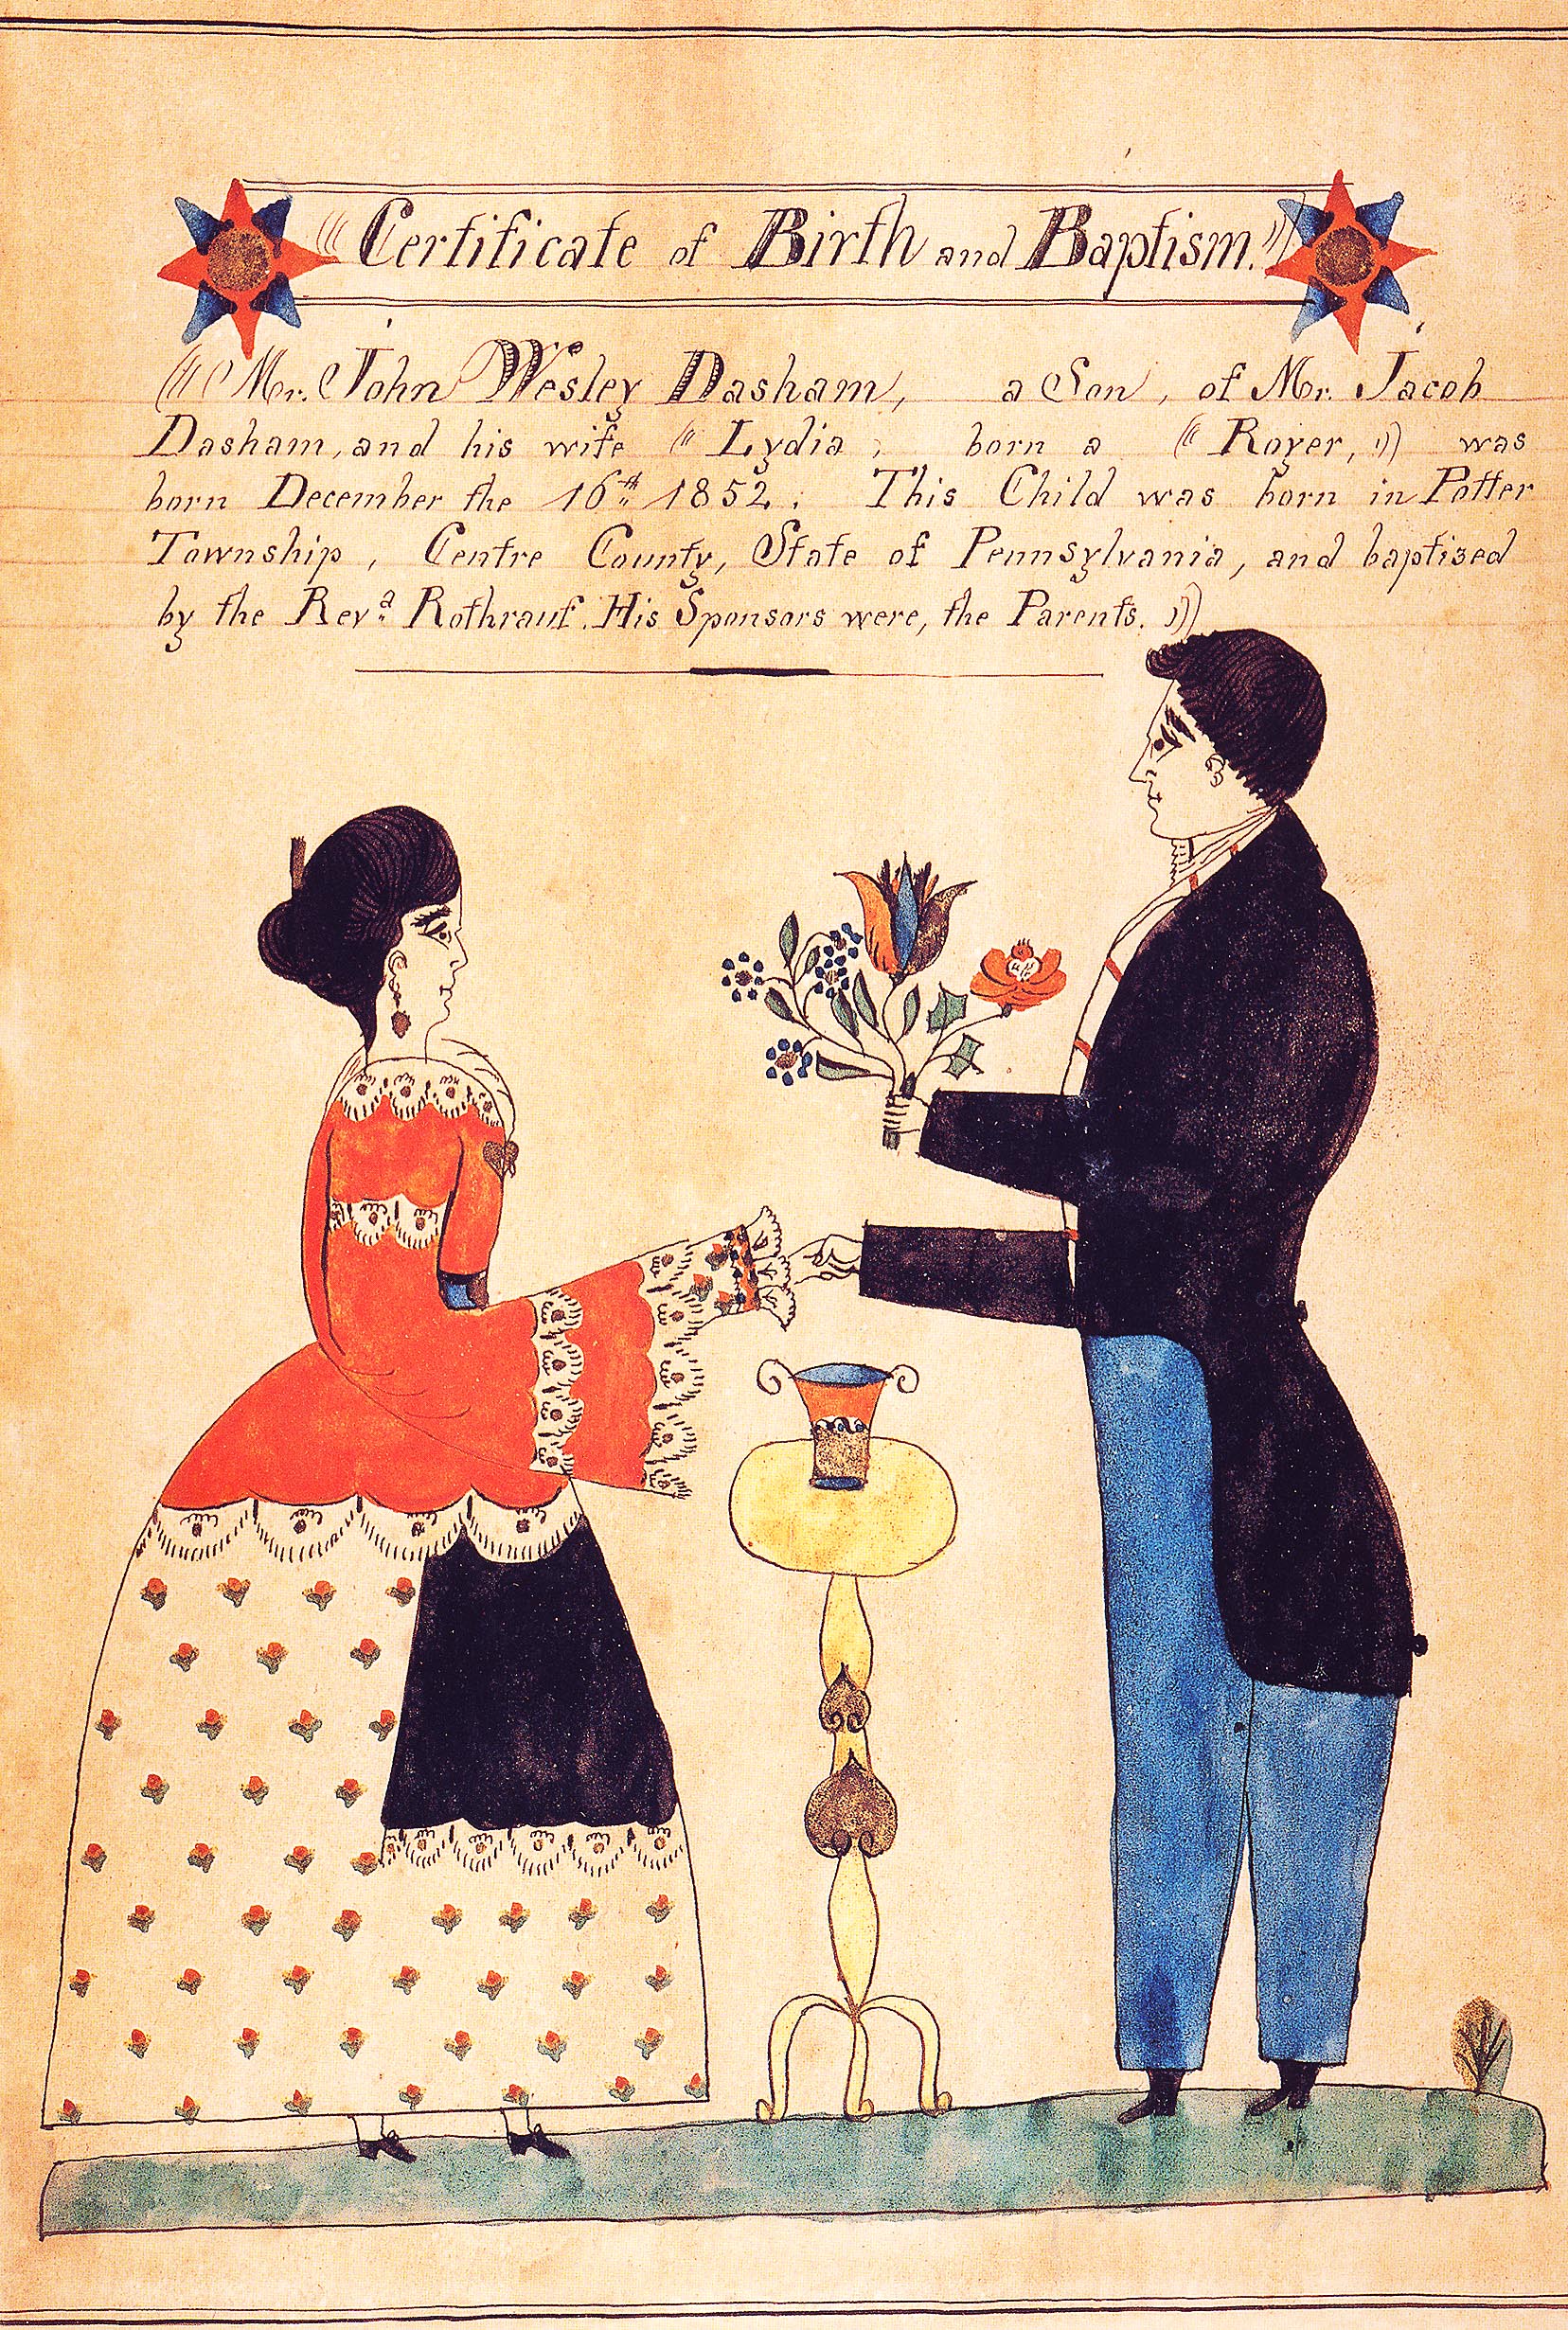 Certificate of Birth and Baptism.
Mr. John Wesley Dasham, a Son, of Mr. Jacob
Dasham, and his wife Lydia, born a Royer, was
born December the 16th 1852. This Child was born in Potter
Township, Centre County, State of Pennsylvania, and baptised
by the Revd. Rothrauf. His Sponsors were, the Parents.